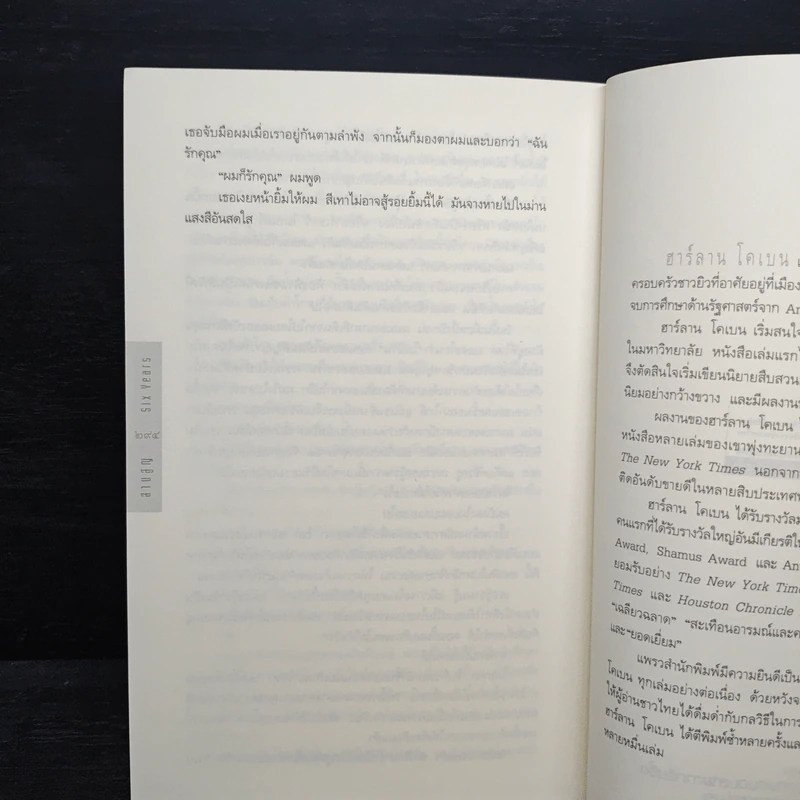 เธอจับมือผมเมื่อเราอยู่กันตามลำพัง จากนั้นก็มองตาผมและบอกว่า “ฉัน
รักคุณ”
“ผมก็รักคุณ” ผมพูด
เธอเงยหน้ายิ้มให้ผม สีเทาไม่อาจสู้รอยยิ้มนี้ได้ มันจางหายไปในม่าน
แสงสีอันสดใส
Six Years
๒๙๔
ลาบสูญ
ฮาร์ลาน โคเบน
ครอบครัวชาวยิวที่อาศัยอยู่ที่เมือง
จบการศึกษาด้านรัฐศาสตร์จาก
ฮาร์ลาน โคเบน เริ่มสนใจ
ในมหาวิทยาลัย หนังสือเล่มแรก
จึงตัดสินใจเริ่มเขียนนิยายสืบสวน
นิยมอย่างกว้างขวาง และมีผลงาน
ผลงานของฮาร์ลาน โคเบน
หนังสือหลายเล่มของเขาพุ่งทะยาน
The New York Times นอกจาก
ติดอันดับขายดีในหลายสิบประเทศ
ฮาร์ลาน โคเบน ได้รับรางวัล
คนแรกที่ได้รับรางวัลใหญ่อันมีเกียรติ
Award, Shamus Award และ An
ยอมรับอย่าง The New York Time
Times และ Houston Chronicle
“เฉลียวฉลาด” “สะเทือนอารมณ์และ
และ“ยอดเยี่ยม”
แพรวสำนักพิมพ์มีความยินดีเป็น
โคเบน ทุกเล่มอย่างต่อเนื่อง ด้วยหวัง
ให้ผู้อ่านชาวไทยได้ดื่มด่ำกับกลวิธีในการ
ฮาร์ลาน โคเบน ได้ตีพิมพ์ซ้ำหลายครั้งและ
หลายหมื่นเล่ม